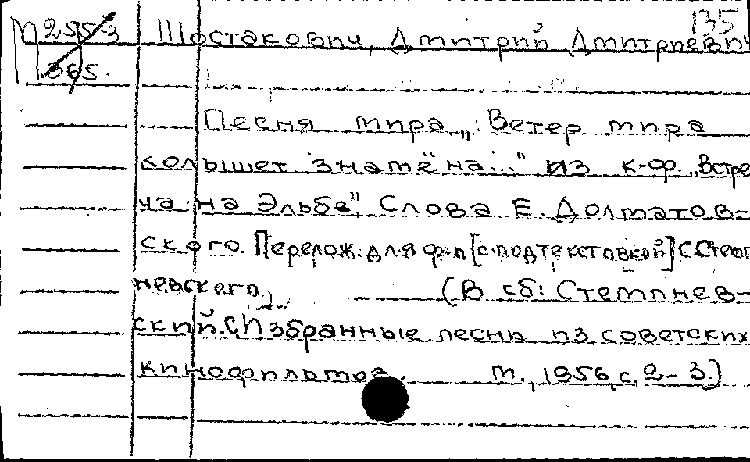 135
М 255-3 Шостакович, Дмитрий Дмитриевич
365.
Песня мира „Ветер мира
колышет знамена..." из к-ф. „Встре
ча на Эльбе", Слова Е. Долматов-
ского. Перелож. для ф-п [с подтекстовкой] С. Стемп
невского. (В сб: Стемпнев-
ский С. Избранные песни из советских
кинофильмов. М., 1956, с. 2-3.)